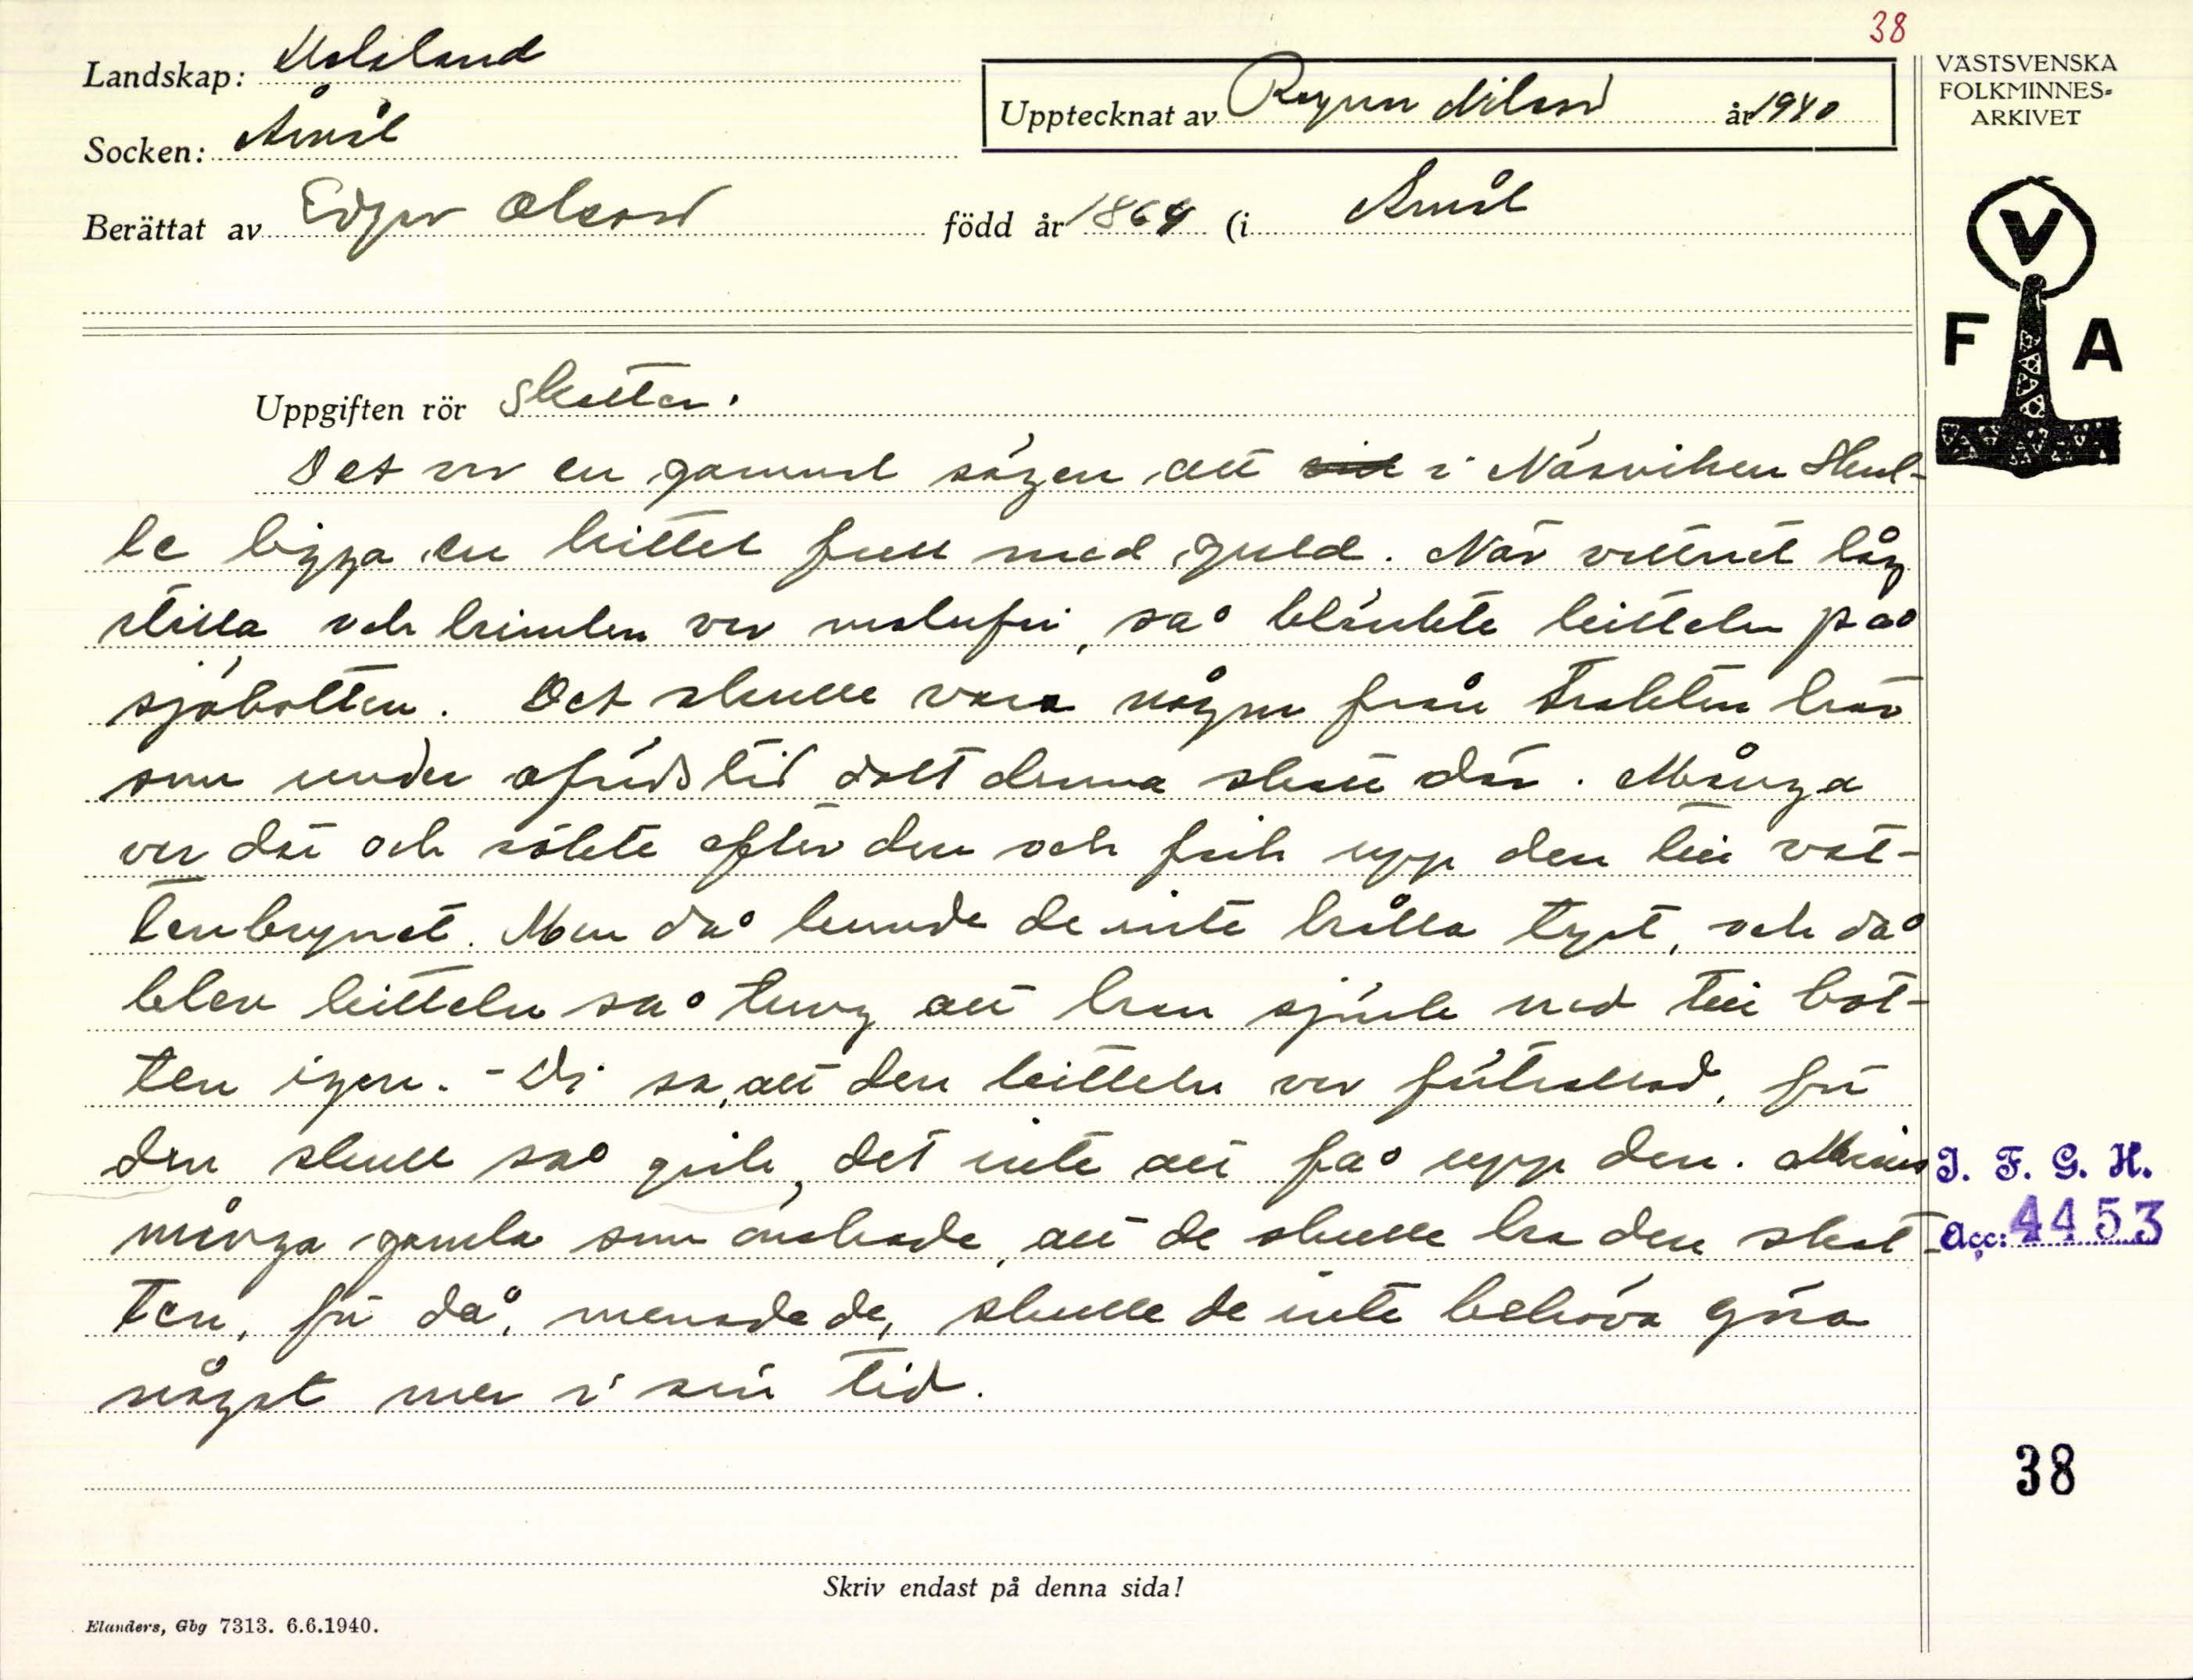 38
Landskap: Dalsland
Upptecknat av Ragnar Nilsson år 1940
VÄSTSVENSKA
FOLKMINNES-
ARKIVET
Socken: Åmål
Berättat av Edgar Olsson född år 1864 (i Åmål
V
F A
Uppgiften rör Skatter.
Det var en gammal sägen att i Näsviken skul-
le ligga en kittel full med guld. När vattnet låg
stilla och himlen var molnfri, så blänkte kitteln på
sjöbotten. Det skulle vara någon från trakten här
som under ofridstid dolt denna skatt där. Många
var där och sökte efter den och fick upp den till vat-
tenbrynet. Men då kunde de inte hålla tyst, och då
blev kitteln så tung att han sjönk ned till bot-
ten igen. - Di sa, att den kitteln var förtrollad, för
den skull så gick det inte att få upp den. Minns
många gamla som önskade, att de skulle ha den skat-
ten, för då, menade de, skulle de inte behöva göra
något mer i sin tid.
I. F. G. H.
Acc: 4453
38
Skriv endast på denna sida!
Elanders, Gbg 7313. 6.6.1940.